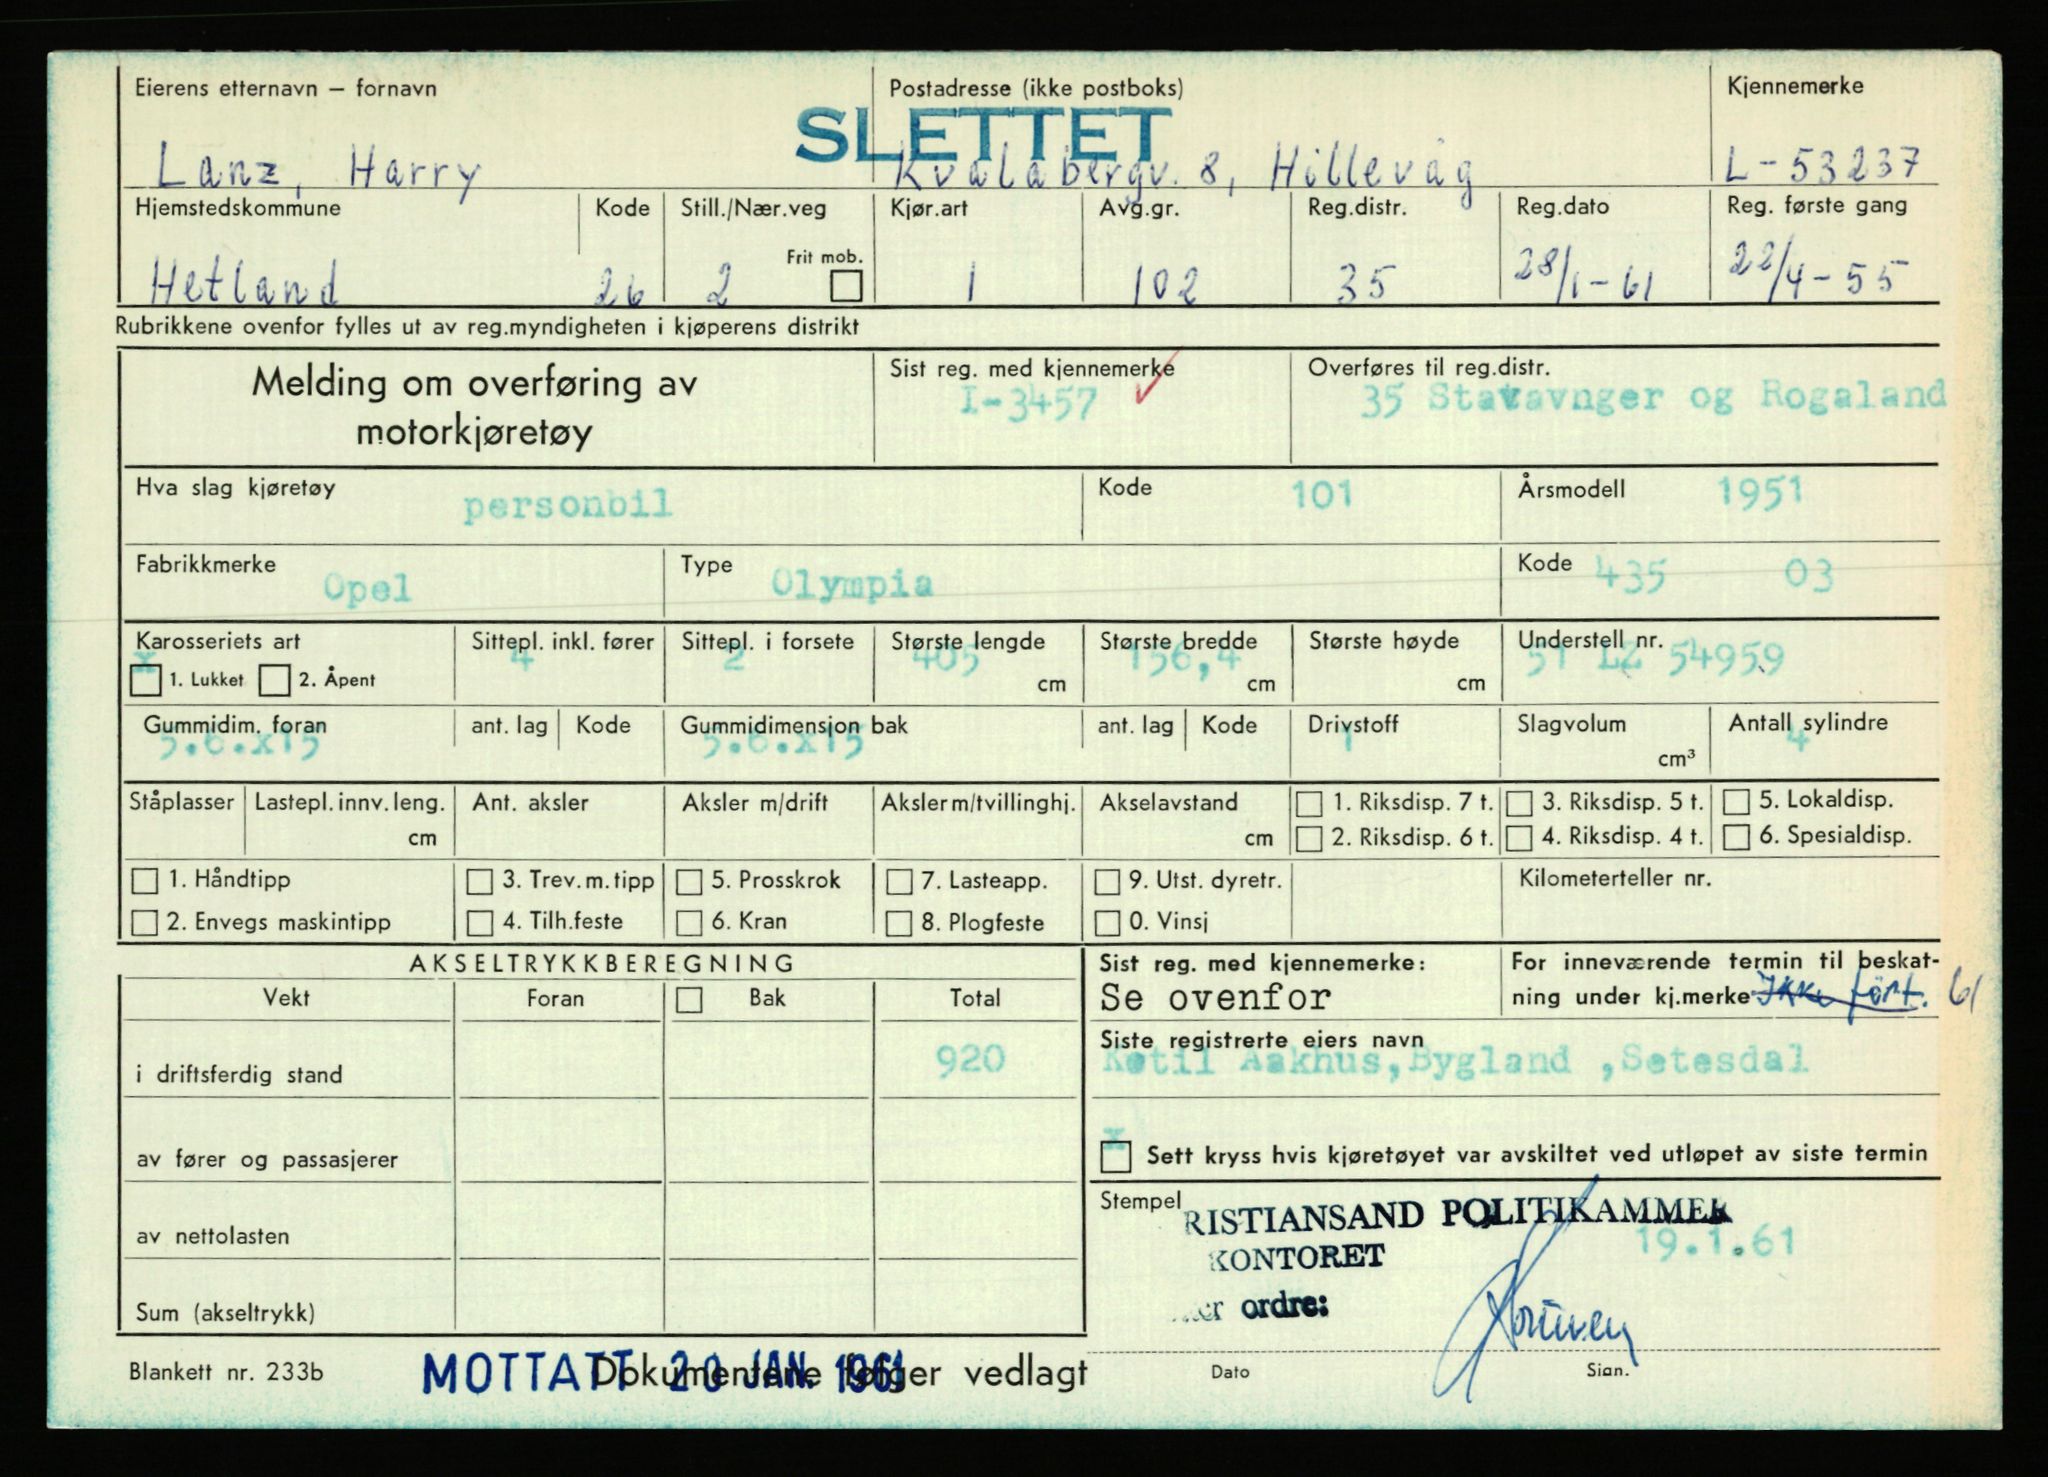 Eierens etternavn – fornavn Postadresse (ikke postboks) Kjennemerke
SLETTET
Lanz, Harry Kvalabergv. 8, Hillevåg L-53237
Hjemstedskommune Kode Still./Nær.veg Kjør.art Avg.gr. Reg.distr. Reg.dato Reg. første gang
Frit mob.
Hetland 26 2 1 102 35 28/1-61 22/4-55
Rubrikkene ovenfor fylles ut av reg.myndigheten i kjøperens distrikt
Melding om overføring av
motorkjøretøy
Sist reg. med kjennemerke Overføres til reg.distr.
I-3457 35 Stavavnger og Rogaland
Hva slag kjøretøy personbil Kode 101 Årsmodell 1951
Fabrikkmerke Opel Type Olympia Kode 435 03
Karosseriets art Sittepl. inkl. fører Sittepl. i forsete Største lengde Største bredde Største høyde Understell nr.
x 4 2 405 156,4 51 LZ 54959
1. Lukket 2. Åpent cm cm cm
Gummidim. foran ant. lag Kode Gummidimensjon bak ant. lag Kode Drivstoff Slagvolum Antall sylindre
5.6.x15 5.6.x15 1 4
cm³
Ståplasser Lastepl. innv. leng. Ant. aksler Aksler m/drift Aksler m/tvillinghj. Akselavstand 1. Riksdisp. 7 t. 3. Riksdisp. 5 t. 5. Lokaldisp.
cm cm 2. Riksdisp. 6 t. 4. Riksdisp. 4 t. 6. Spesialdisp.
1. Håndtipp 3. Trev.m.tipp 5. Prosskrok 7. Lasteapp. 9. Utst. dyretr. Kilometerteller nr.
2. Envegs maskintipp 4. Tilh.feste 6. Kran 8. Plogfeste 0. Vinsj
AKSELTRYKKBEREGNING
Vekt Foran Bak Total
i driftsferdig stand 920
av fører og passasjerer
av nettolasten
Sum (akseltrykk)
Sist reg. med kjennemerke: For inneværende termin til beskat-
Se ovenfor ning under kj.merke Ikke ført. 61
Siste registrerte eiers navn
Ketil Aakhus, Bygland , Setesdal
x
Sett kryss hvis kjøretøyet var avskiltet ved utløpet av siste termin
Stempel
RISTIANSAND POLITIKAMMER
19.1.61
KONTORET
er ordre:
Blankett nr. 233b Dokumentene følger vedlagt Dato Sign.
MOTTATT 20 JAN. 1961